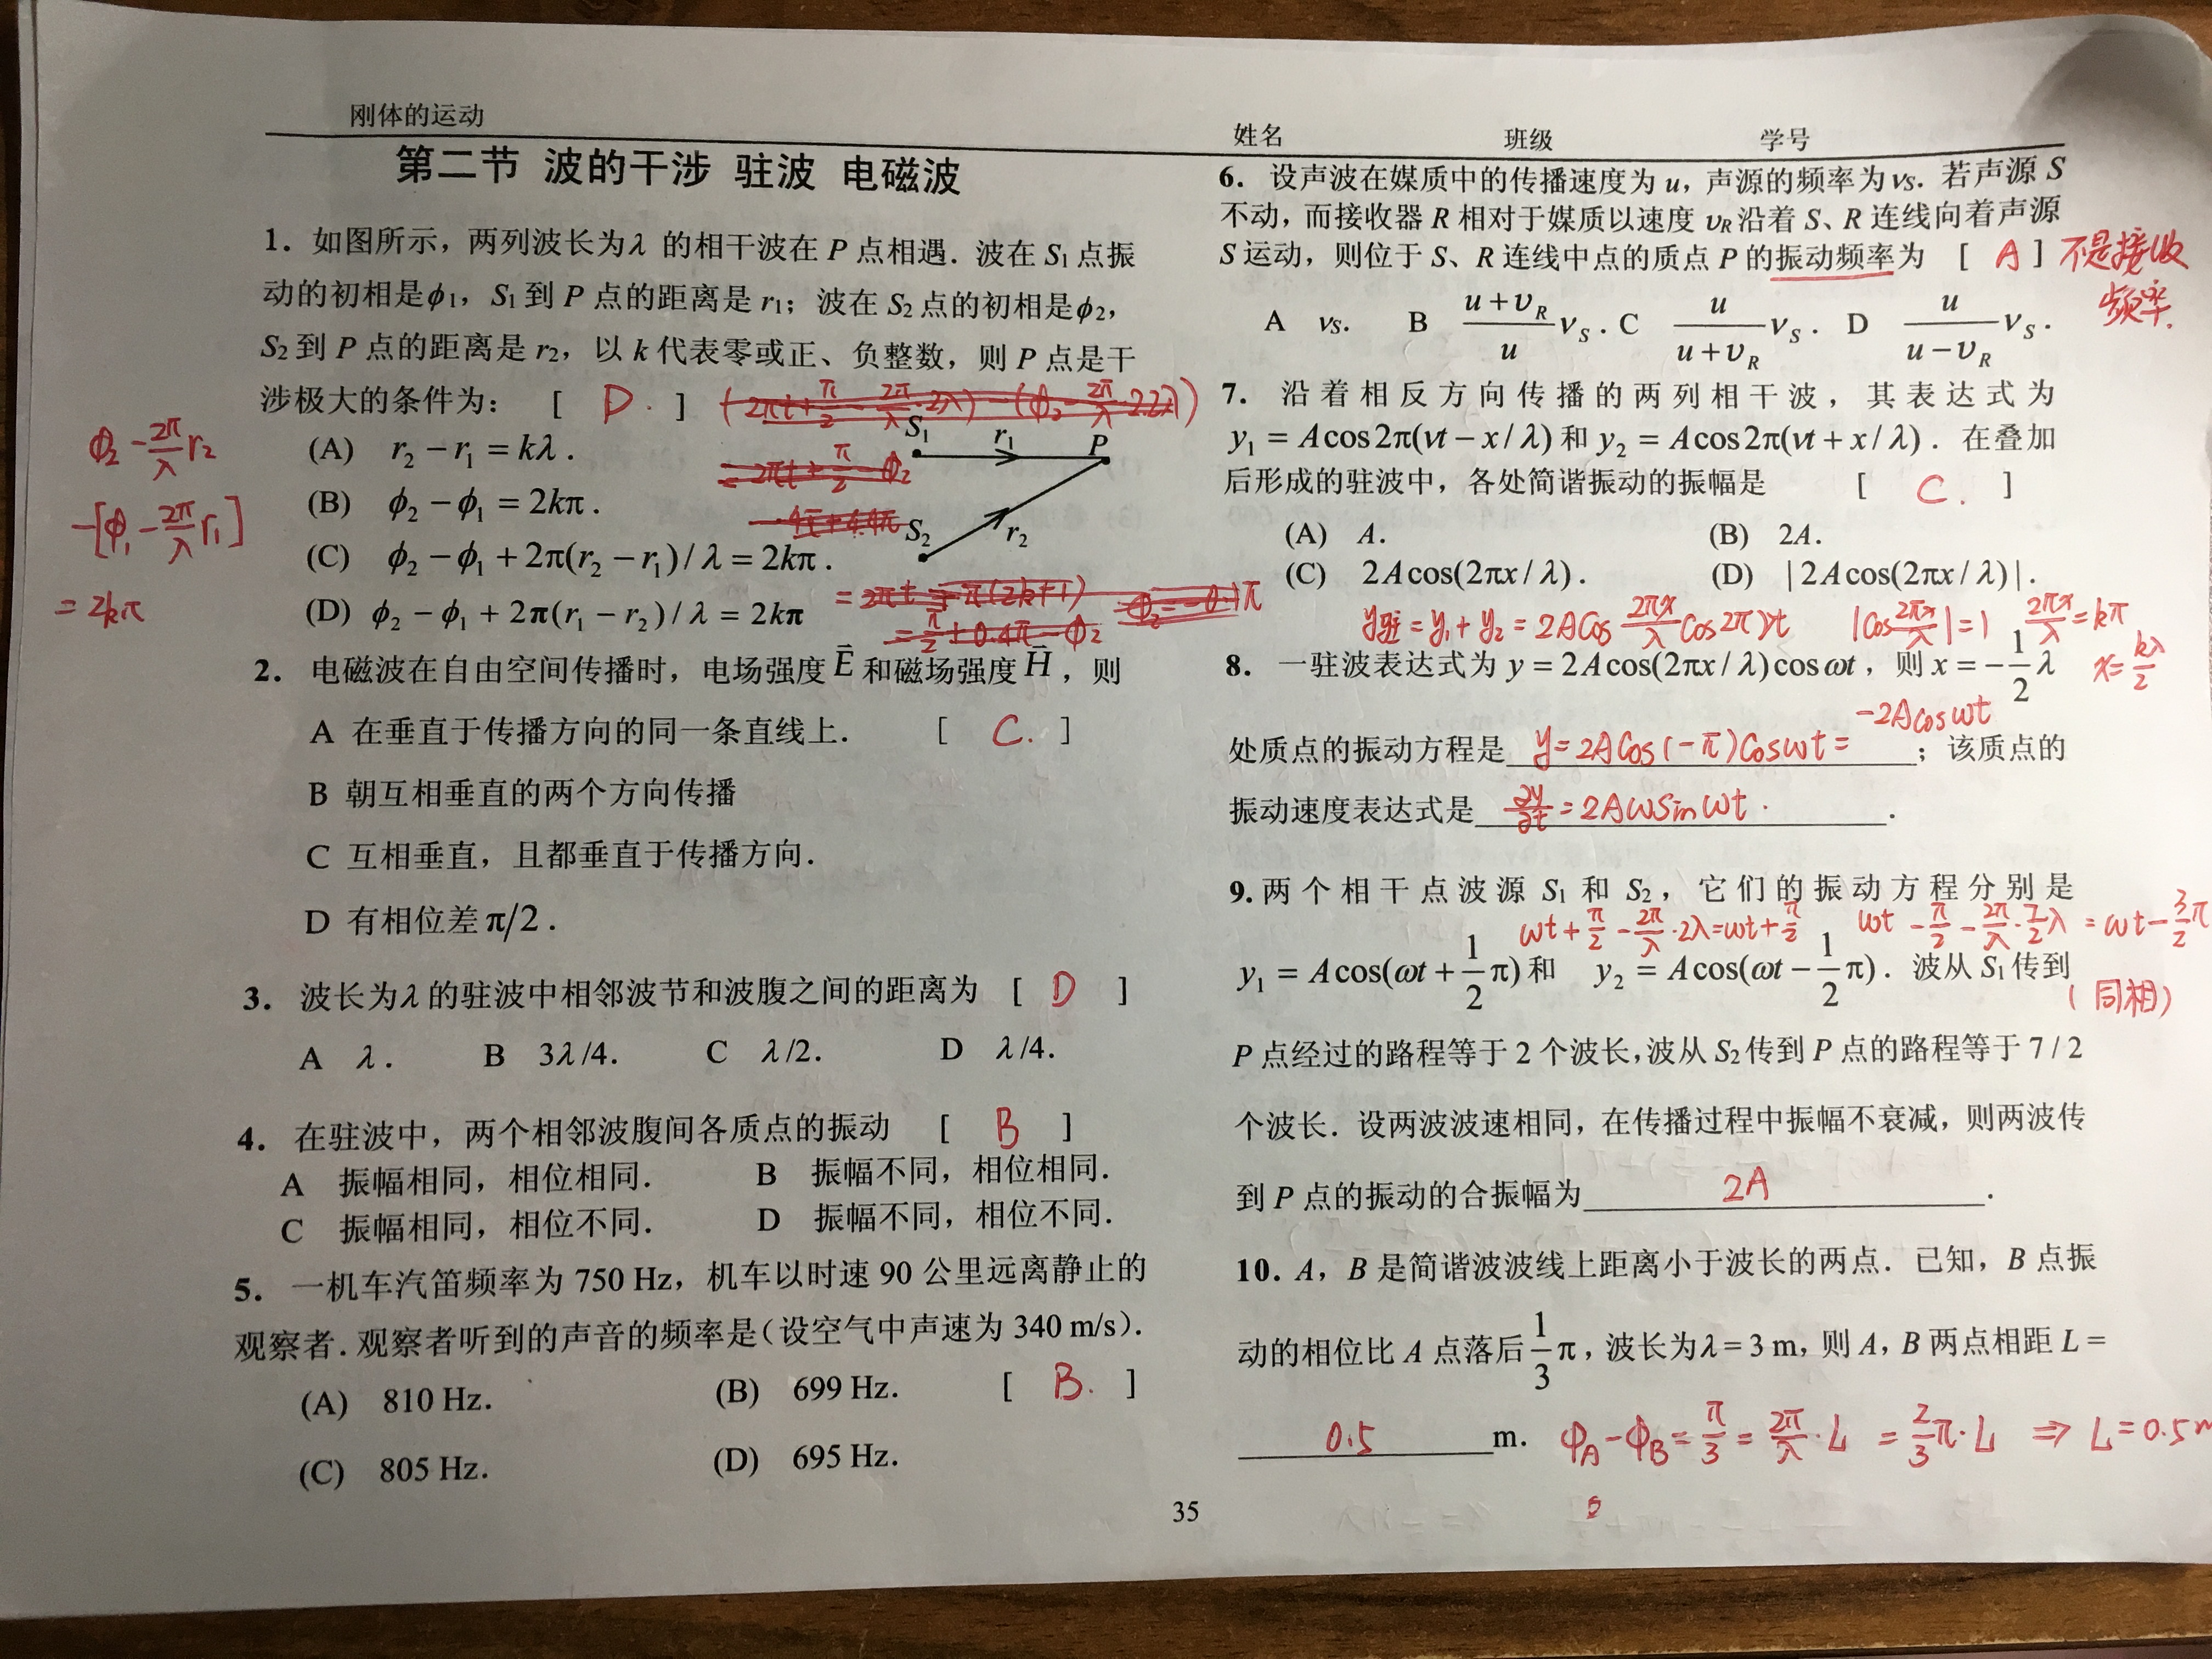 刚体的运动
第二节 波的干涉 驻波 电磁波
1. 如图所示，两列波长为λ 的相干波在 P 点相遇. 波在 S₁ 点振
动的初相是ϕ₁，S₁ 到 P 点的距离是 r₁；波在 S₂ 点的初相是ϕ₂，
S₂ 到 P 点的距离是 r₂，以 k 代表零或正、负整数，则 P 点是干
涉极大的条件为： [ D. ]
ϕ₂ − 2π/λ r₂
−[ϕ₁ − 2π/λ r₁]
= 2kπ
(A) r₂ − r₁ = kλ .
(B) ϕ₂ − ϕ₁ = 2kπ .
(C) ϕ₂ − ϕ₁ + 2π(r₂ − r₁)/ λ = 2kπ .
(D) ϕ₂ − ϕ₁ + 2π(r₁ − r₂)/ λ = 2kπ
S₁ r₁ P
S₂ r₂
2. 电磁波在自由空间传播时，电场强度 E⃗ 和磁场强度 H⃗ ，则
A 在垂直于传播方向的同一条直线上. [ C. ]
B 朝互相垂直的两个方向传播
C 互相垂直，且都垂直于传播方向.
D 有相位差 π/2 .
3. 波长为λ 的驻波中相邻波节和波腹之间的距离为 [ D ]
A λ . B 3λ /4. C λ /2. D λ /4.
4. 在驻波中，两个相邻波腹间各质点的振动 [ B ]
A 振幅相同，相位相同. B 振幅不同，相位相同.
C 振幅相同，相位不同. D 振幅不同，相位不同.
5. 一机车汽笛频率为 750 Hz，机车以时速 90 公里远离静止的
观察者. 观察者听到的声音的频率是（设空气中声速为 340 m/s）.
(A) 810 Hz. (B) 699 Hz. [ B. ]
(C) 805 Hz. (D) 695 Hz.
姓名 班级 学号
6. 设声波在媒质中的传播速度为 u，声源的频率为 νS. 若声源 S
不动，而接收器 R 相对于媒质以速度 υR 沿着 S、R 连线向着声源
S 运动，则位于 S、R 连线中点的质点 P 的振动频率为 [ A ] 不是接收
频率.
A νS. B (u + υR)/u νS . C u/(u + υR) νS . D u/(u − υR) νS .
7. 沿着相反方向传播的两列相干波，其表达式为
y₁ = A cos 2π(νt − x / λ) 和 y₂ = A cos 2π(νt + x / λ) . 在叠加
后形成的驻波中，各处简谐振动的振幅是 [ C. ]
(A) A. (B) 2A.
(C) 2A cos(2πx / λ) . (D) | 2A cos(2πx / λ) | .
y驻 = y₁ + y₂ = 2A Cos 2πx/λ Cos 2πνt |Cos 2πx/λ| = 1 2πx/λ = kπ
x = kλ/2
8. 一驻波表达式为 y = 2A cos(2πx / λ) cos ωt ，则 x = −1/2 λ
处质点的振动方程是 y = 2A Cos (−π) Cosωt = −2A Cos ωt ；该质点的
振动速度表达式是 ∂y/∂t = 2Aω Sin ωt . .
9. 两个相干点波源 S₁ 和 S₂，它们的振动方程分别是
ωt + π/2 − 2π/λ · 2λ = ωt + π/2 ωt − π/2 − 2π/λ · 7/2 λ = ωt − 3/2 π
y₁ = A cos(ωt + 1/2 π) 和 y₂ = A cos(ωt − 1/2 π) . 波从 S₁ 传到
（同相）
P 点经过的路程等于 2 个波长，波从 S₂ 传到 P 点的路程等于 7 / 2
个波长. 设两波波速相同，在传播过程中振幅不衰减，则两波传
到 P 点的振动的合振幅为 2A .
10. A，B 是简谐波波线上距离小于波长的两点. 已知，B 点振
动的相位比 A 点落后 1/3 π，波长为λ = 3 m，则 A，B 两点相距 L =
0.5 m. ϕA − ϕB = π/3 = 2π/λ · L = 2/3 π · L ⇒ L = 0.5 m
35